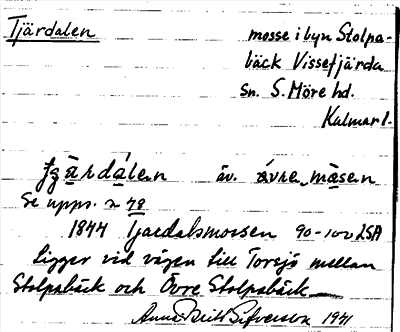 Tjärdalen mosse i byn Stolpa-
bäck Vissefjärda
Sn. S. Möre hd.
Kalmar l.
äv. ávre måsen
Se upps. s 48
1844 Tjardalsmossen 90-100 LSA
Ligger vid vägen till Torsjö mellan
Stolpabäck och Övre Stolpabäck
Anna-Britt Sifversson 1941